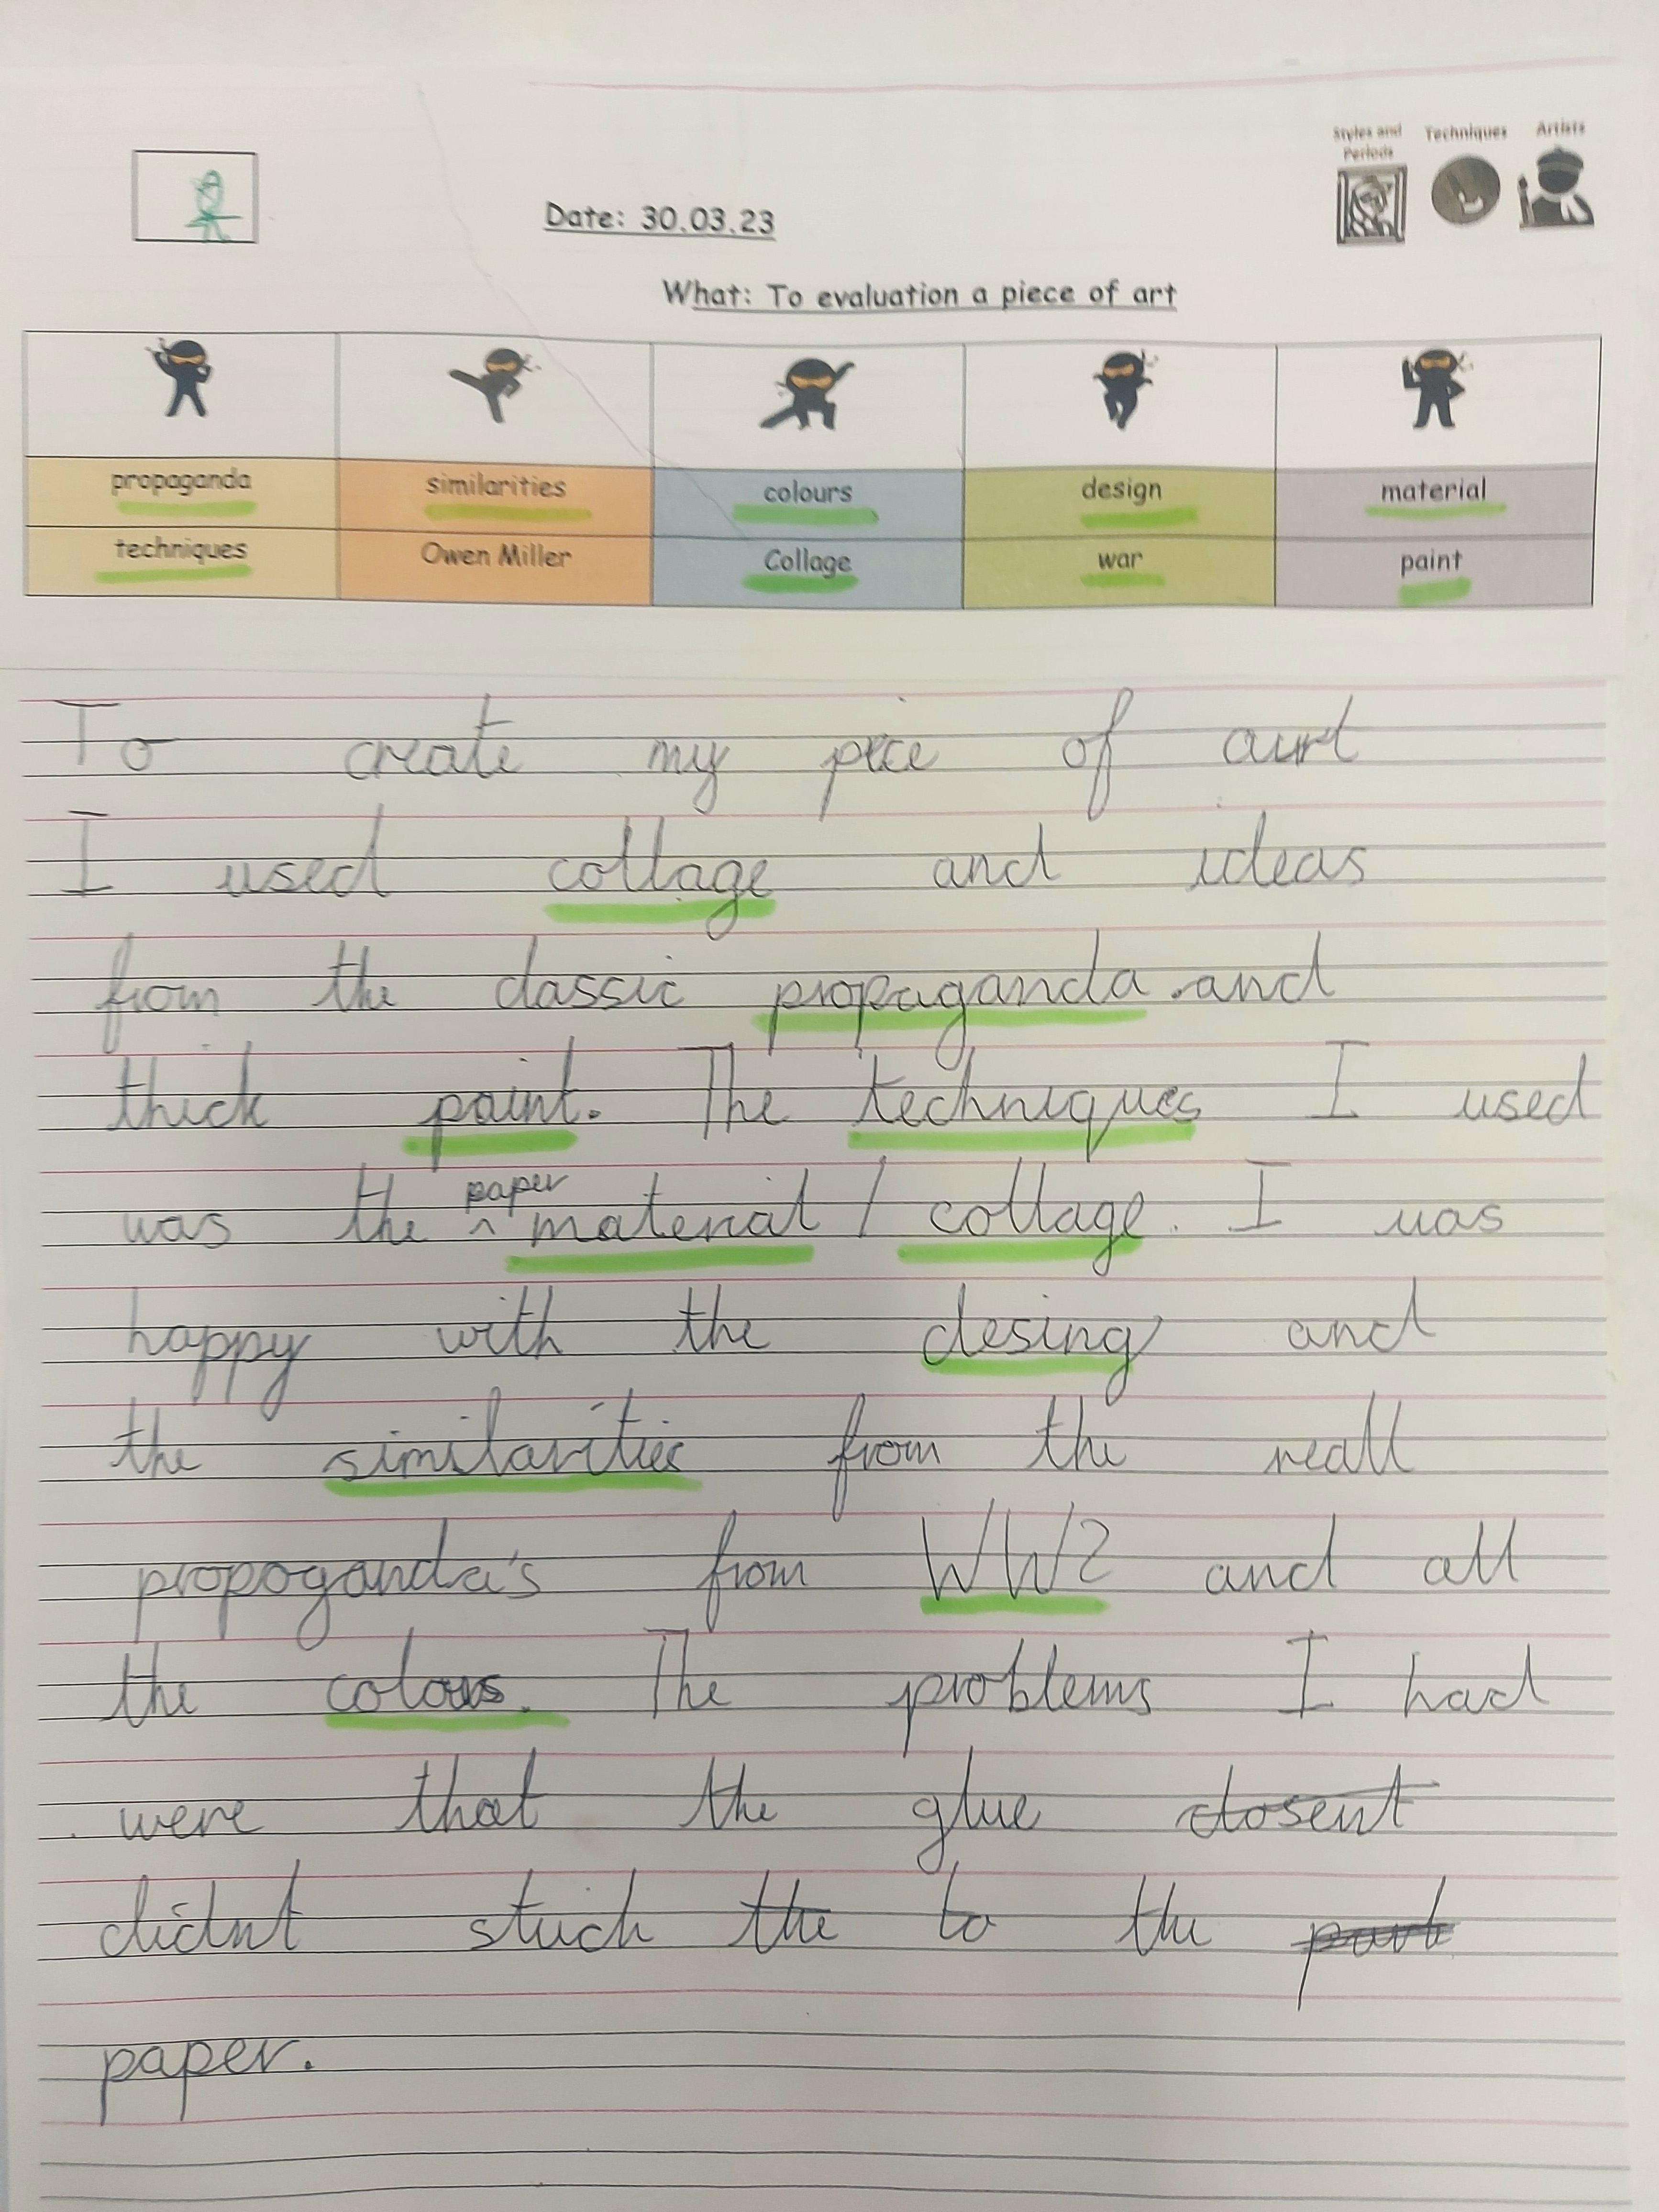 Styles and Periods Techniques Artists
Date: 30.03.23
What: To evaluation a piece of art
propaganda similarities colours design material
techniques Owen Miller Collage war paint
To create my piece of aurt
I used collage and ideas
from the classic propaganda and
thick paint. The techniques I used
was the ^ paper material / collage. I was
happy with the desing and
the similarities from the reall
propoganda's from WW2 and all
the colours. The problems I had
were that the glue dosent
didnt stuck the to the
paper.